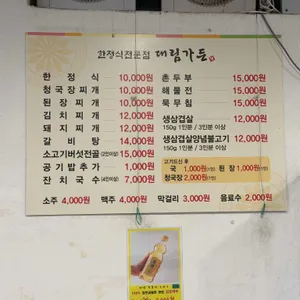 한정식전문점 대림가든
한정식 10,000원
청국장찌개 10,000원
된장찌개 10,000원
김치찌개 12,000원
돼지찌개 12,000원
갈비탕 14,000원
소고기버섯전골 (2인이상) 15,000원
공기밥추가 1,000원
잔치국수 (4인이상) 7,000원
촌두부 15,000원
해물전 15,000원
묵무침 15,000원
생삼겹살 12,000원
150g 1인분 / 3인분 이상
생삼겹살양념불고기 12,000원
150g 1인분 / 3인분 이상
고기드신 후
국 1,000원(1인) 된장 1,000원(1인)
청국장 2,000원(1인)
소주 4,000원 맥주 4,000원 막걸리 3,000원 음료수 2,000원